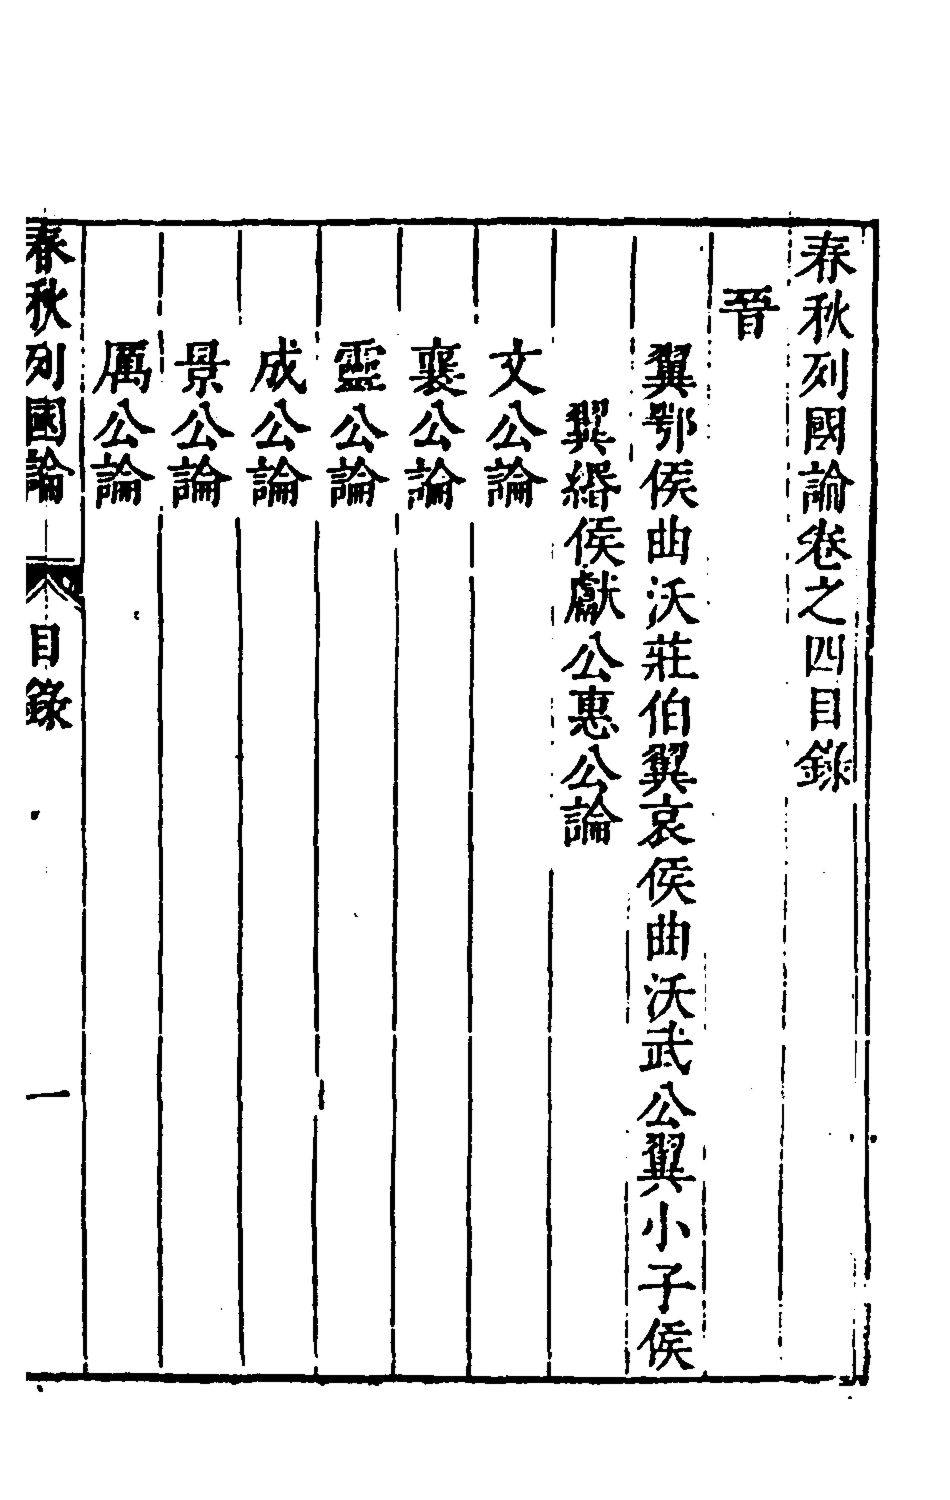 春秋列國論卷之四目錄
晉
翼鄂侯曲沃莊伯翼哀侯曲沃武公翼小子侯
翼緡侯獻公惠公論
文公論
襄公論
靈公論
成公論
景公論
厲公論
春秋列國論 目錄 一